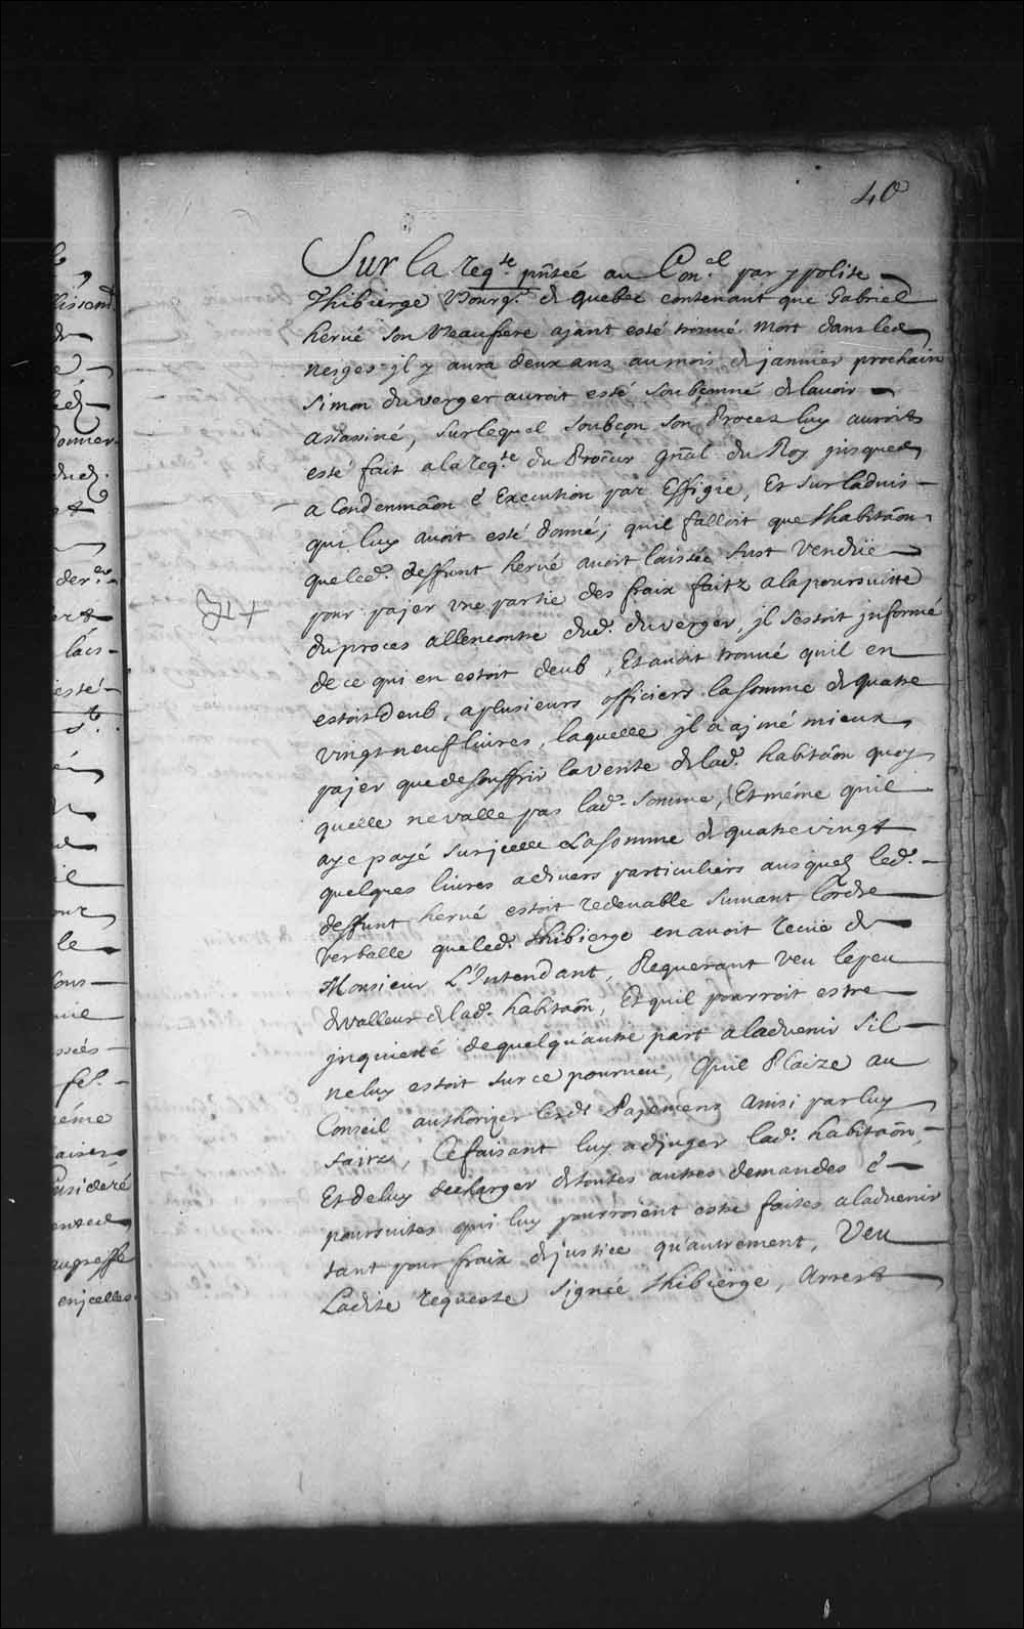 40
Sur la reqte. pñtéé au Conel. par ypolite
Thibierge Bourgs. de quebec contenant que Gabriel
hervé son beaufrere ajant esté trouué mort dans les
neiges jl y aura deux ans au mois de januier prochain
Simon duverger auroit esté soubçonné de lauoir
assassiné, surlequel soubçon son Procez luy auroit
esté fait a la reqte. du Procur gñal du Roy jusques
a Condemnãon & Execution par Effigie, Et sur laduis
qui luy auoit esté donné, quil falloit que lhabitãon
que led. deffunt hervé auoit laissée fust vendüe
pour pajer vne partie des fraix faitz a la poursuitte
du proces allencontre dud. duverger, jl sestoit jnformé
de ce qui en estoit deub, Et auoit trouué quil en
estoit deub, a plusieurs officiers la somme de quatre
vingt neuf liures, laquelle jl a ajmé mieux
pajer que de souffrir la vente de lad. habitãon quoy
quelle ne valle pas lad. somme, Et méme quil
aye payé sur jcelle La somme de quatre vingt
quelques liures a diuers particuliers ausquelz led.
deffunt hervé estoit redeuable suiuant lordre
verballe que led. thibierge en auoit receu de
Monsieur L'Intendant, Requerant veu le peu
de valleur de lad. habitãon, Et quil pourroit estre
jnquietté de quelqu'autre part a laduenir sil
ne luy estoit sur ce pourueu, Quil Plaize au
Conseil authoriser lesds. Pajemens ainsi par luy
faitz, Ce faisant luy adjuger lad. habitãon,
Et de luy decharger de toutes autres demandes &
poursuites qui luy pourroient estre faites a laduenir
tant pour fraix de justice qu'autrement, Veu
Ladite requeste signée thibierge, Arrest